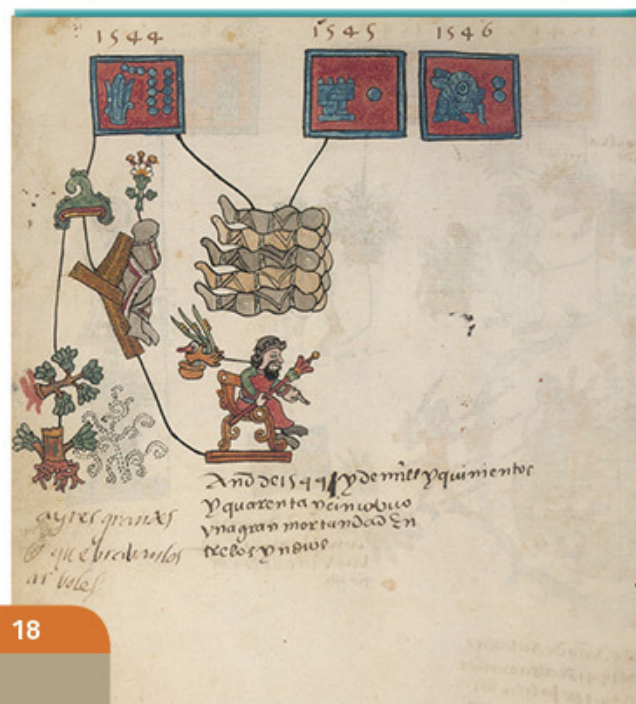 1544 1545 1546
Año de 1544 y de mill y quinientos
y quarenta y cinco uvo
vna gran mortandad En
tre los yndios
ayres grandes
los
arboles
18